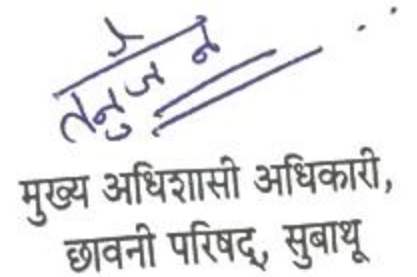 मुख्य अधिशासी अधिकारी,
छावनी परिषद्, सुबाथू